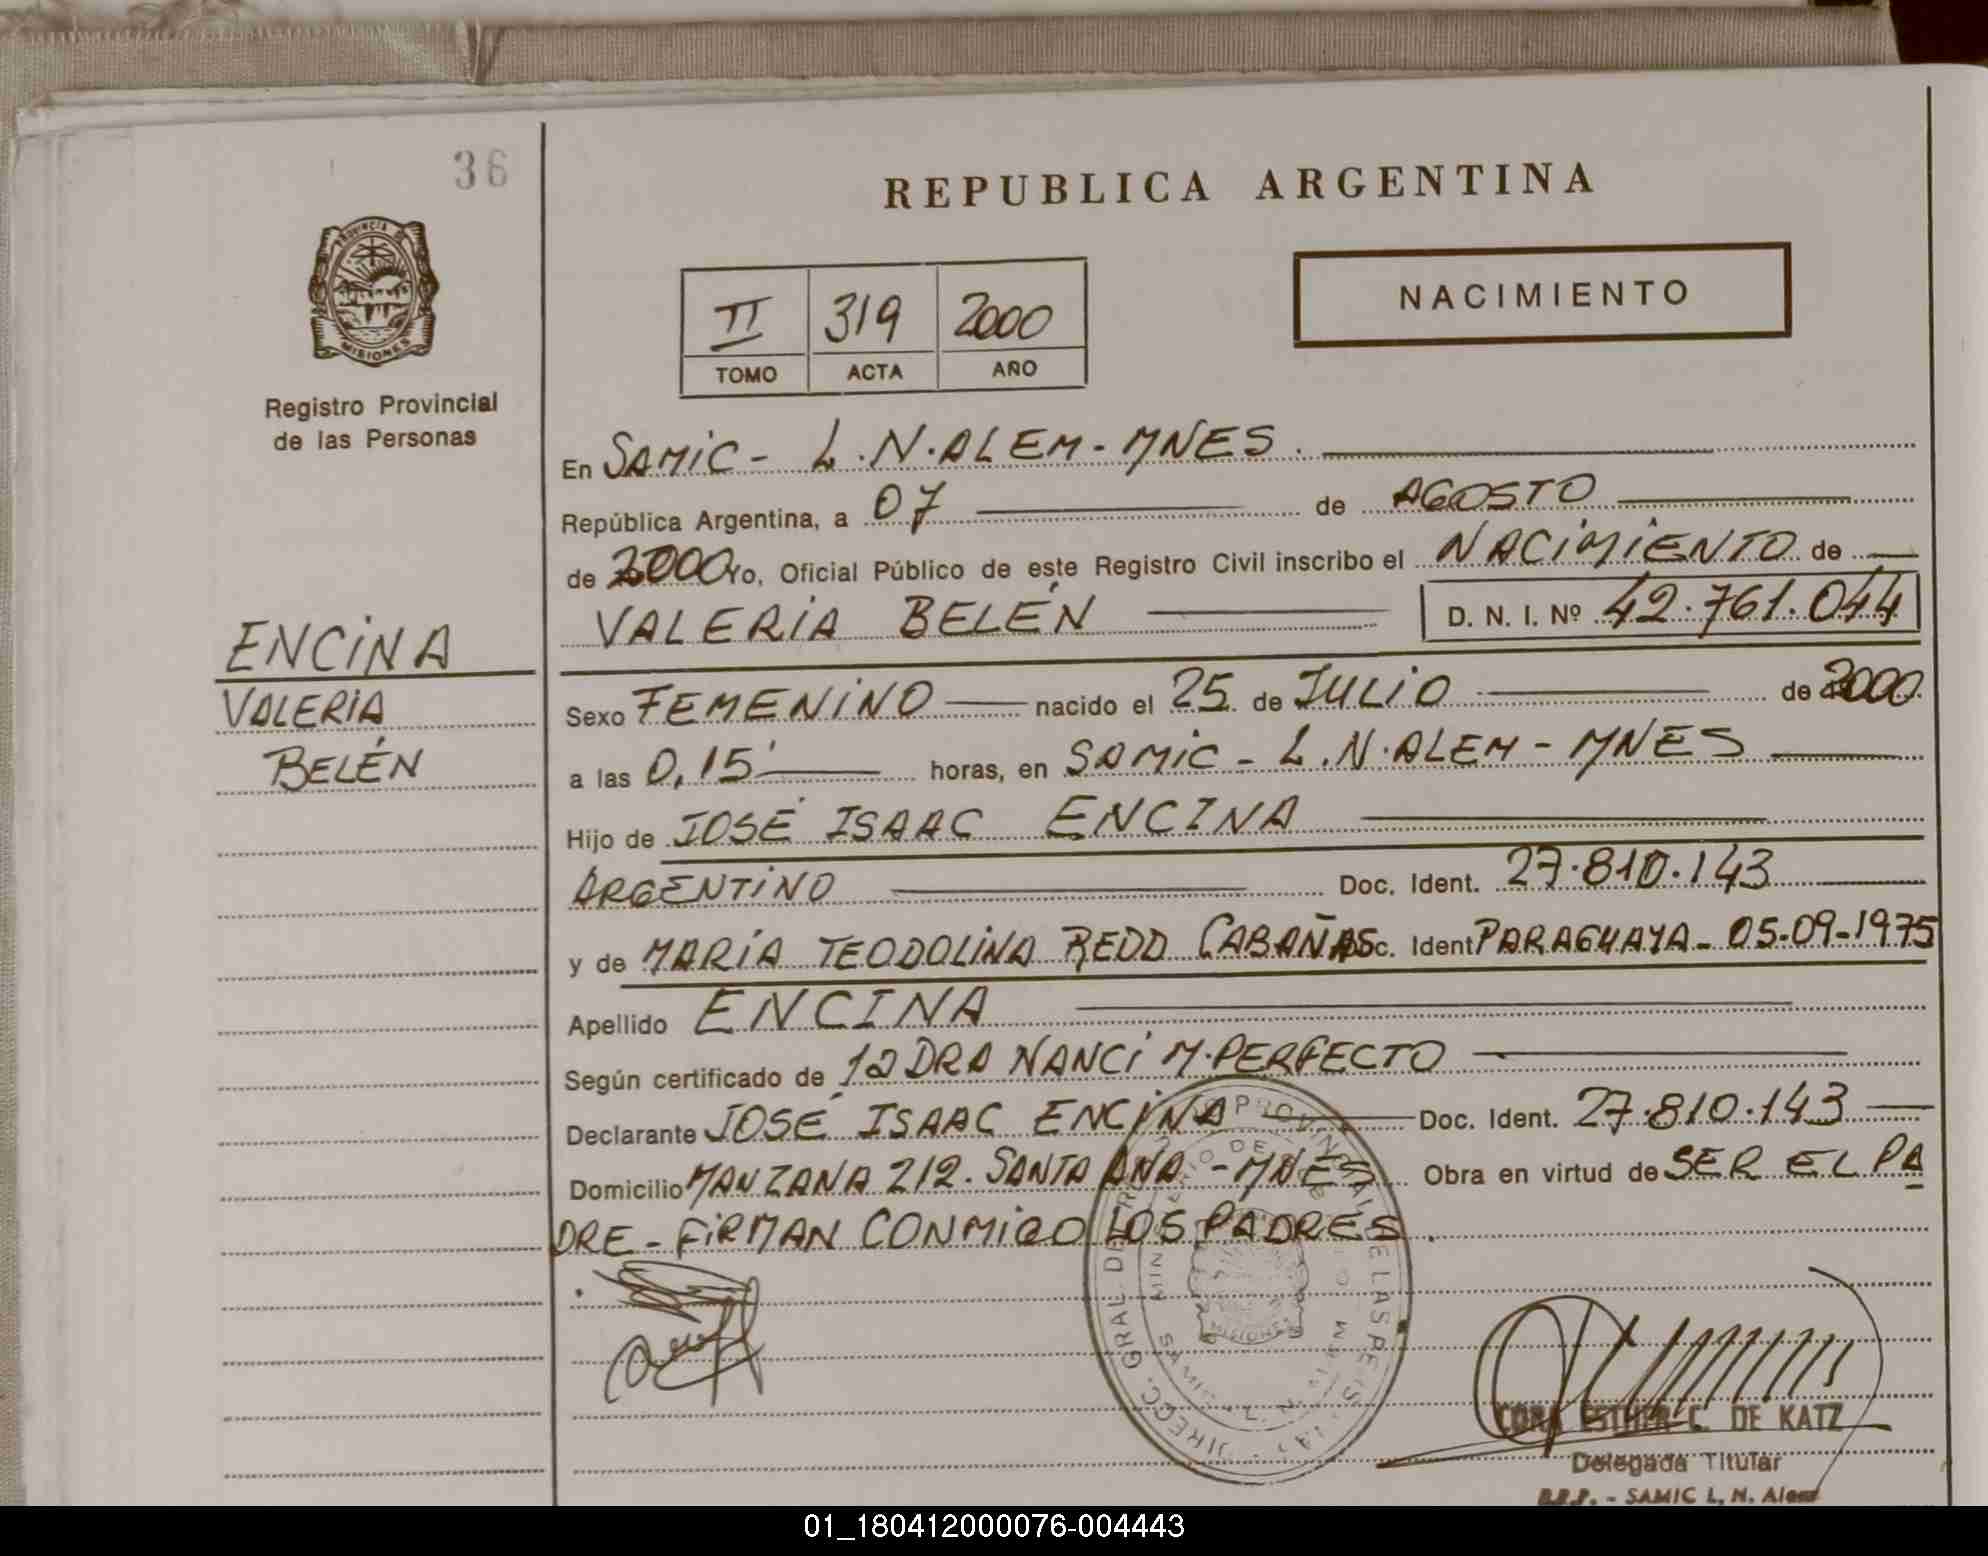 36
REPUBLICA ARGENTINA
PROVINCIA DE
MISIONES
Registro Provincial
de las Personas
NACIMIENTO
II 319 2000
TOMO ACTA AÑO
En SAMIC - L.N.ALEM - MNES.
República Argentina, a 07 de AGOSTO
de 2000 Yo, Oficial Público de este Registro Civil inscribo el NACIMIENTO de
VALERIA BELÉN D. N. I. Nº 42.761.044
ENCINA
VALERIA
BELÉN
Sexo FEMENINO nacido el 25 de JULIO de 2000
a las 0,15' horas, en SAMIC - L.N.ALEM - MNES
Hijo de JOSÉ ISAAC ENCINA
ARGENTINO Doc. Ident. 27.810.143
y de MARÍA TEODOLINA REDD CABAÑAS Doc. Ident PARAGUAYA - 05-09-1975
Apellido ENCINA
Según certificado de la DRA NANCI M. PERFECTO
Declarante JOSÉ ISAAC ENCINA Doc. Ident. 27.810.143
Domicilio MANZANA 212. SANTA ANA - MNES Obra en virtud de SER EL PA
DRE - FIRMAN CONMIGO LOS PADRES.
MISIONES
CORA ESTHER C. DE KATZ
Delegada Titular
SAMIC L. N. Alem
01_180412000076-004443